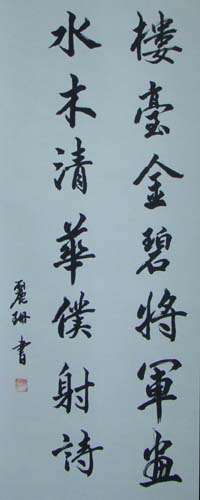 樓臺金碧將軍畫
水木清華僕射詩
麗珊書